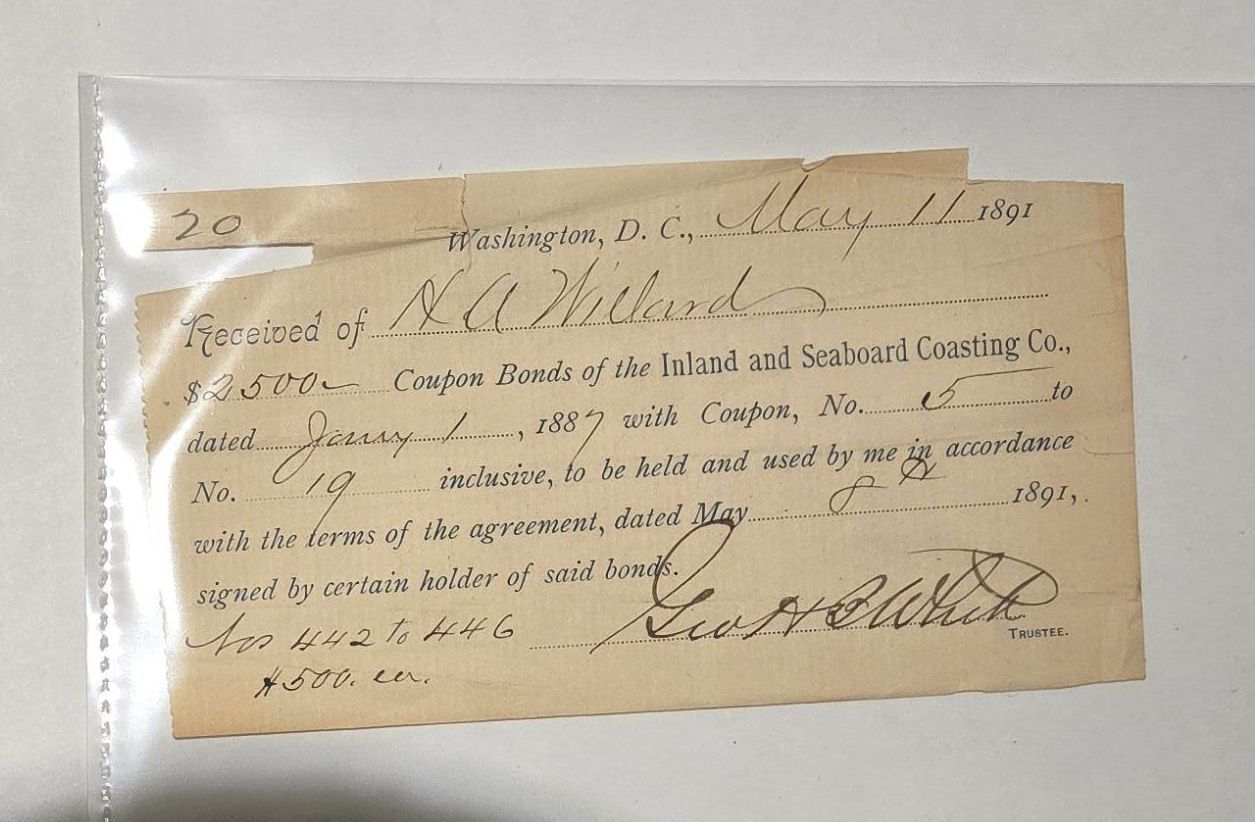 20
Washington, D. C., May 11 1891
Received of H A Willard
$2500 Coupon Bonds of the Inland and Seaboard Coasting Co.,
dated Jany 1, 1887 with Coupon, No. 5 to
No. 19 inclusive, to be held and used by me in accordance
with the terms of the agreement, dated May 8th 1891,
signed by certain holder of said bonds.
Nos 442 to 446
$500. ea.
Geo H B White
TRUSTEE.